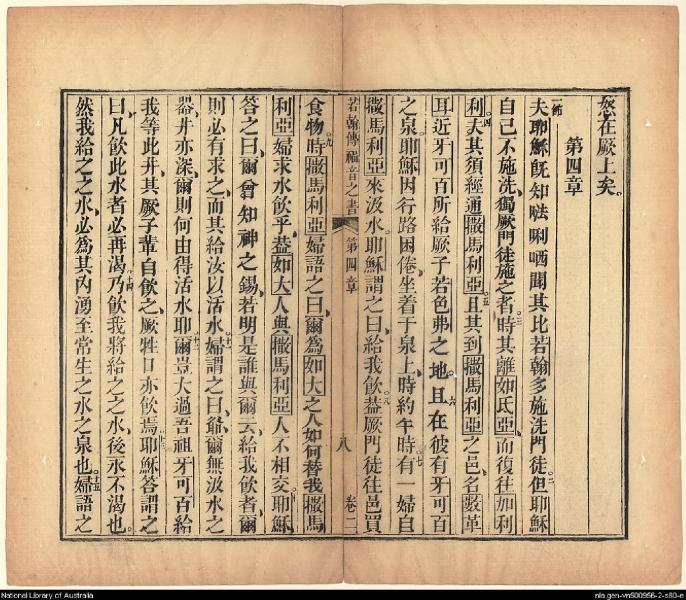 怒在厥上矣。
第四章
一節夫耶穌旣知𠵽唎哂聞其比若翰多施洗門徒但耶穌
自己不施洗獨厥門徒施之者時其離如氐亞而復徃加利
利夫其須經通撒馬利亞且其到撒馬利亞之邑名數革
耳近牙可百所給厥子若色弗之地且在彼有牙可百
之泉耶穌因行路困倦坐着于泉上時約午時有一婦自
撒馬利亞來汲水耶穌謂之曰給我飲葢厥門徒徃邑買
若翰傳福音之書 第四章 八 卷二
食物時撒馬利亞婦語之曰爾爲如大之人如何替我撒馬
利亞婦求水飲乎葢如大人與撒馬利亞人不相交耶穌
答之曰爾曾知神之錫若明是誰與爾云給我飲者爾
則必有求之而其給汝以活水婦謂之曰爺爾無汲水之
器井亦深爾則何由得活水耶爾豈大過吾祖牙可百給
我等此井其厥子輩自飲之厥牲口亦飲焉耶穌答謂之
曰凡飲此水者必再渴乃飲我將給之之水後永不渴也
然我給之之水必爲其內湧至常生之水之泉也婦語之
National Library of Australia
nla.gen-vn500956-2-s80-e